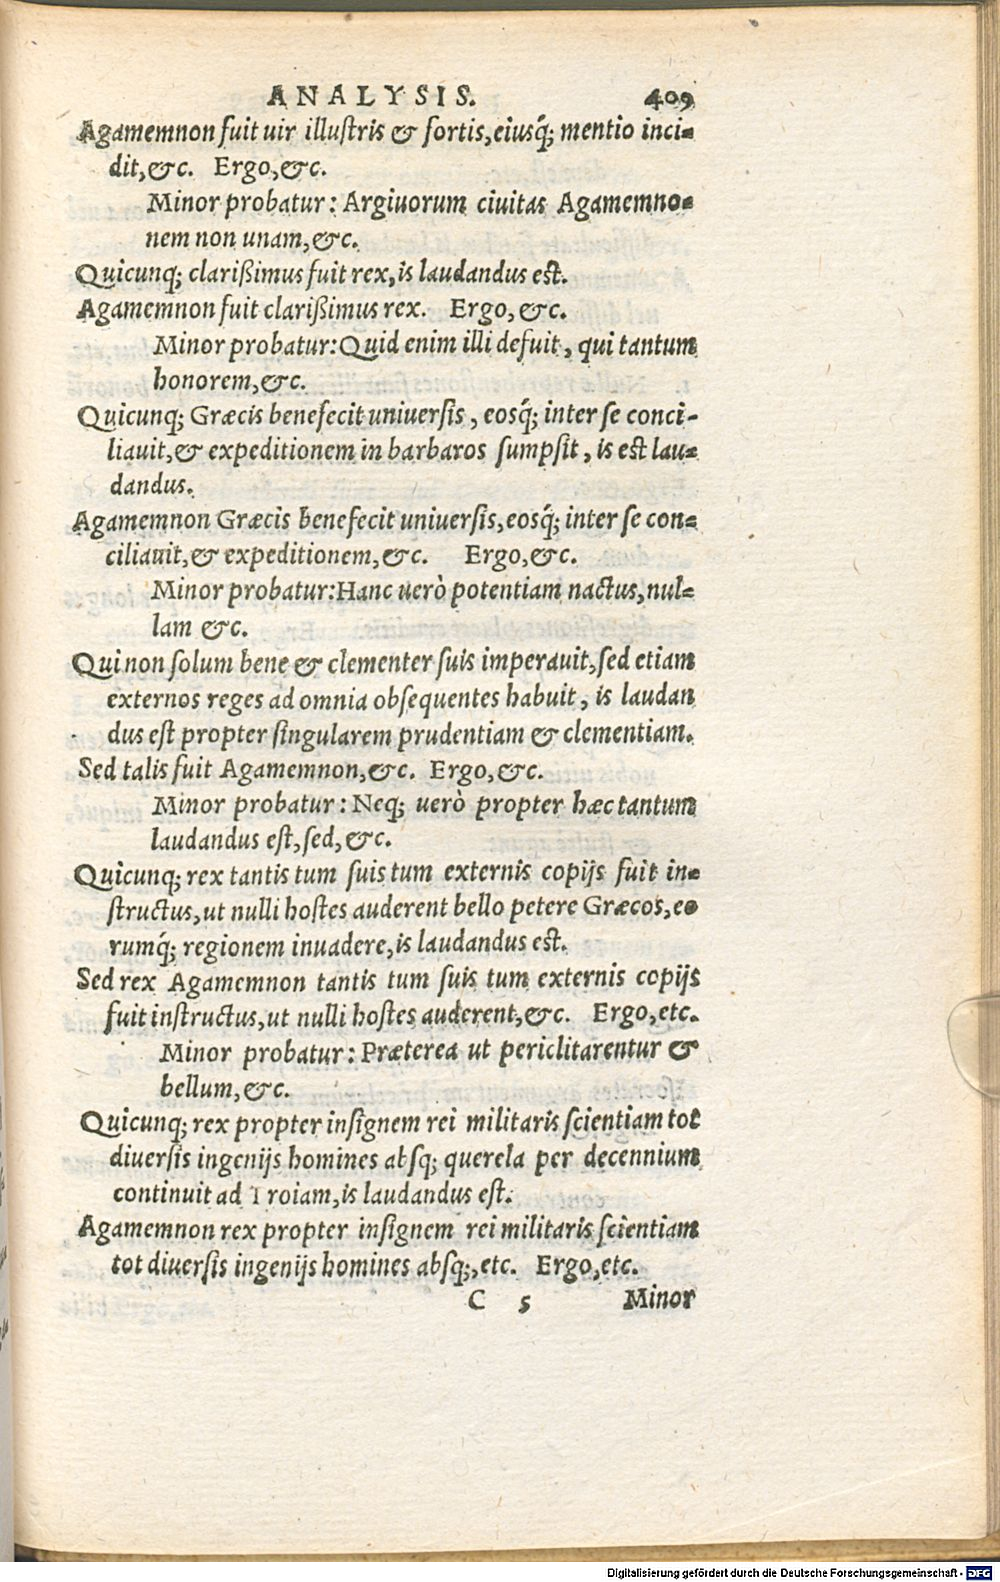 ANALYSIS. 409
Agamemnon fuit uir illuſtris & fortis, eiusq́; mentio inci-
dit, &c. Ergo, &c.
Minor probatur: Argiuorum ciuitas Agamemno-
nem non unam, &c.
Quicunq; clarißimus fuit rex, is laudandus eſt.
Agamemnon fuit clarißimus rex. Ergo, &c.
Minor probatur: Quid enim illi defuit, qui tantum
honorem, &c.
Quicunq; Græcis benefecit uniuerſis, eosq́; inter ſe conci-
liauit, & expeditionem in barbaros ſumpſit, is eſt lau-
dandus.
Agamemnon Græcis benefecit uniuerſis, eosq́; inter ſe con-
ciliauit, & expeditionem, &c. Ergo, &c.
Minor probatur: Hanc uerò potentiam nactus, nul-
lam &c.
Qui non ſolum bene & clementer ſuis imperauit, ſed etiam
externos reges ad omnia obſequentes habuit, is laudan
dus eſt propter ſingularem prudentiam & clementiam.
Sed talis fuit Agamemnon, &c. Ergo, &c.
Minor probatur: Neq; uerò propter hæc tantum
laudandus eſt, ſed, &c.
Quicunq; rex tantis tum ſuis tum externis copijs fuit in-
ſtructus, ut nulli hoſtes auderent bello petere Græcos, eo
rumq́; regionem inuadere, is laudandus eſt.
Sed rex Agamemnon tantis tum ſuis tum externis copijs
fuit inſtructus, ut nulli hoſtes auderent, &c. Ergo, etc.
Minor probatur: Præterea ut periclitarentur &
bellum, &c.
Quicunq; rex propter inſignem rei militaris ſcientiam tot
diuerſis ingenijs homines abſq; querela per decennium
continuit ad Troiam, is laudandus eſt.
Agamemnon rex propter inſignem rei militaris ſcientiam
tot diuerſis ingenijs homines abſq;, etc. Ergo, etc.
C 5 Minor
Digitalisierung gefördert durch die Deutsche Forschungsgemeinschaft - DFG